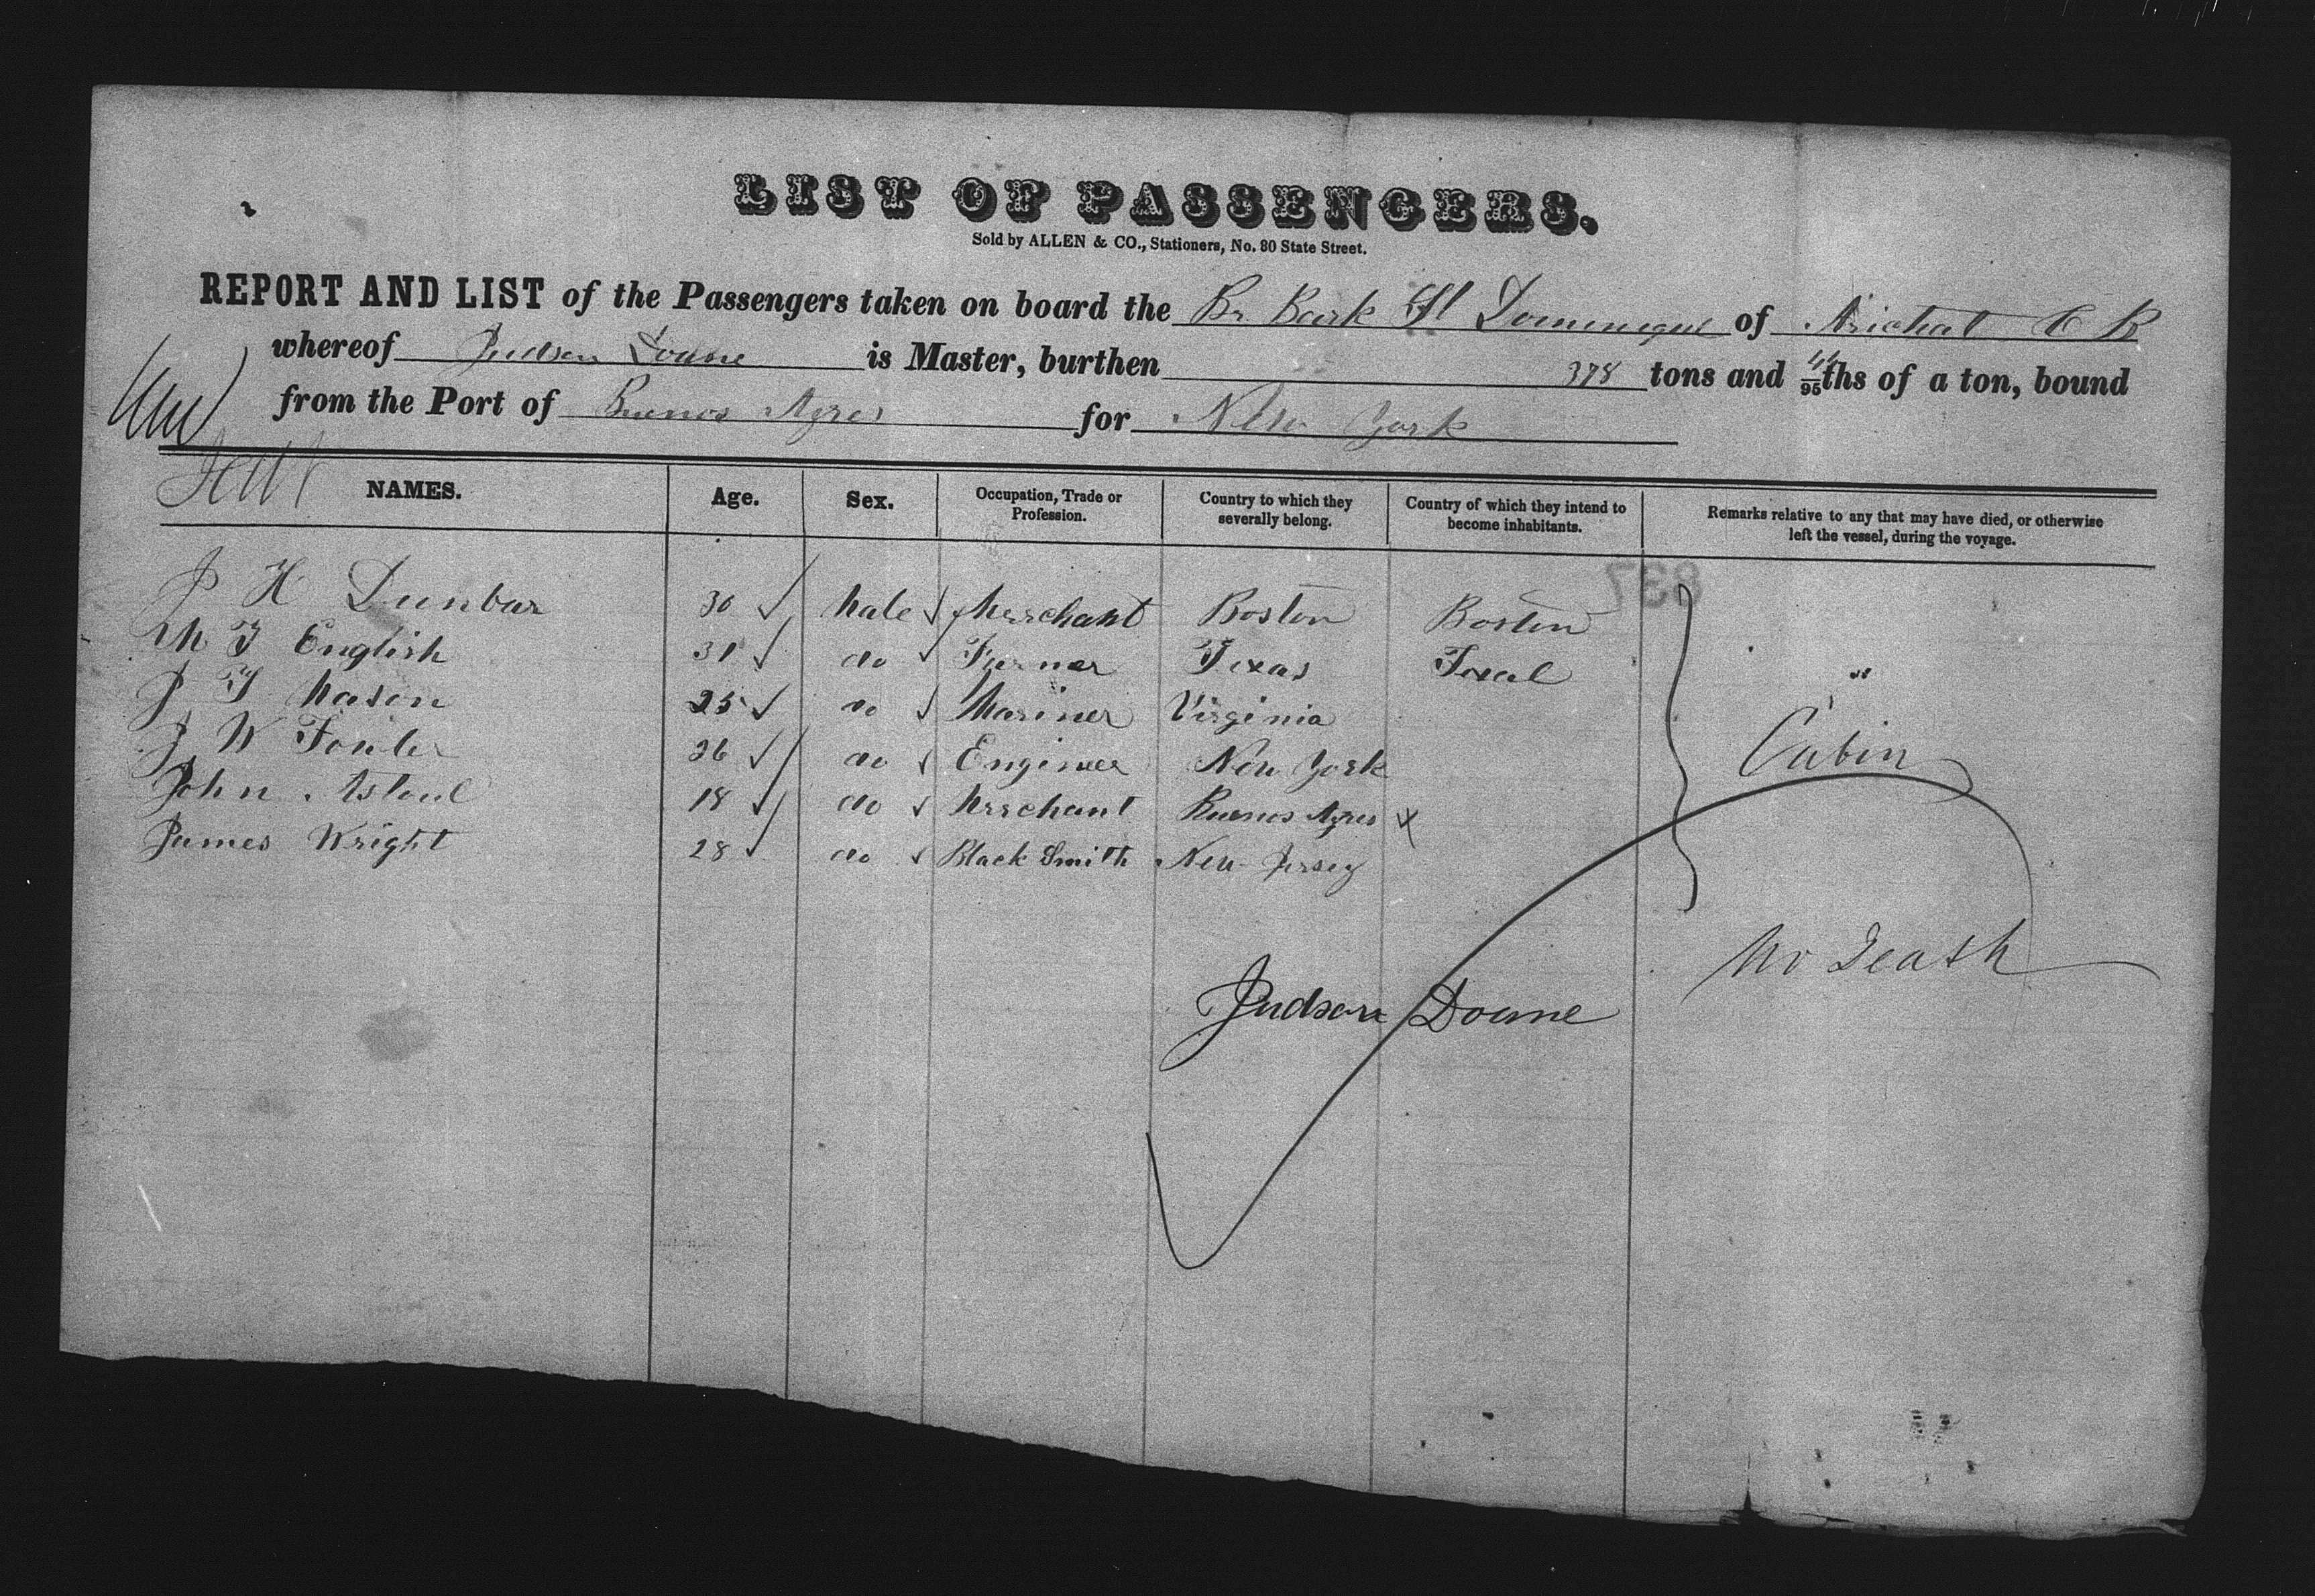 LIST OF PASSENGERS.
Sold by ALLEN & CO., Stationers, No. 80 State Street.
REPORT AND LIST of the Passengers taken on board the Br Bark St Dominique of Arichat C B
whereof Judson Doane is Master, burthen 378 tons and 44/95ths of a ton, bound
from the Port of Buenos Ayres for New York
NAMES. Age. Sex. Occupation, Trade or Profession. Country to which they severally belong. Country of which they intend to become inhabitants. Remarks relative to any that may have died, or otherwise left the vessel, during the voyage.
837
J H Dunbar 30 Male Merchant Boston Boston
M T English 31 do Farmer Texas Texas "
J T Mason 25 do Mariner Virginia
J W Fowler 26 do Engineer New York Cabin
John 18 do Merchant Buenos Ayres x
James Wright 28 do Black Smith New Jersey
No Death
Judson Doane